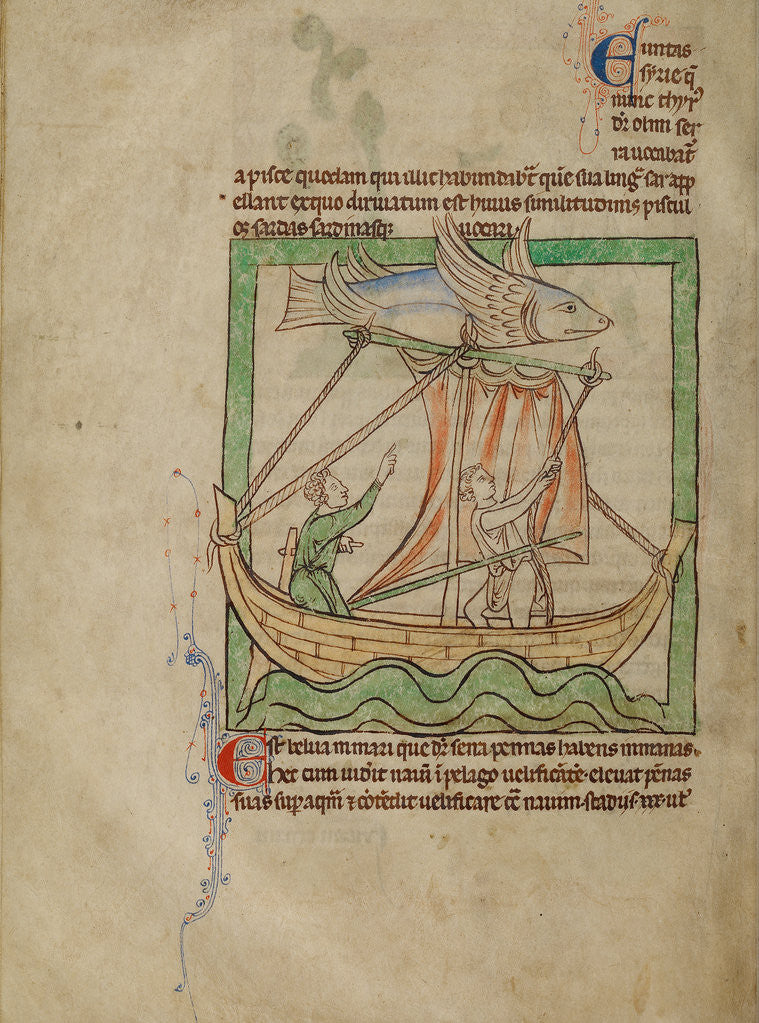 Euntas
syrie q̄
nunc thyr᷒
dr̄ olim ser
ra uocabat᷑
a pisce quodam qui illic habundab̄t que᷒ sua ling᷑ sar app
ellant ex quo diriuatum est huius similitudinis piscicul
os sardas sardinasq; uocari.
Est belua in mari que dr̄ serra pennas habens inmanas.
hec cum uiderit nauē ī pelago uelificātē. eleuat pēnas
suas sup̄ aqm̄ ⁊ cōtēdit uelificare cc̄ nauim. stadijs .xxx. ul᷑